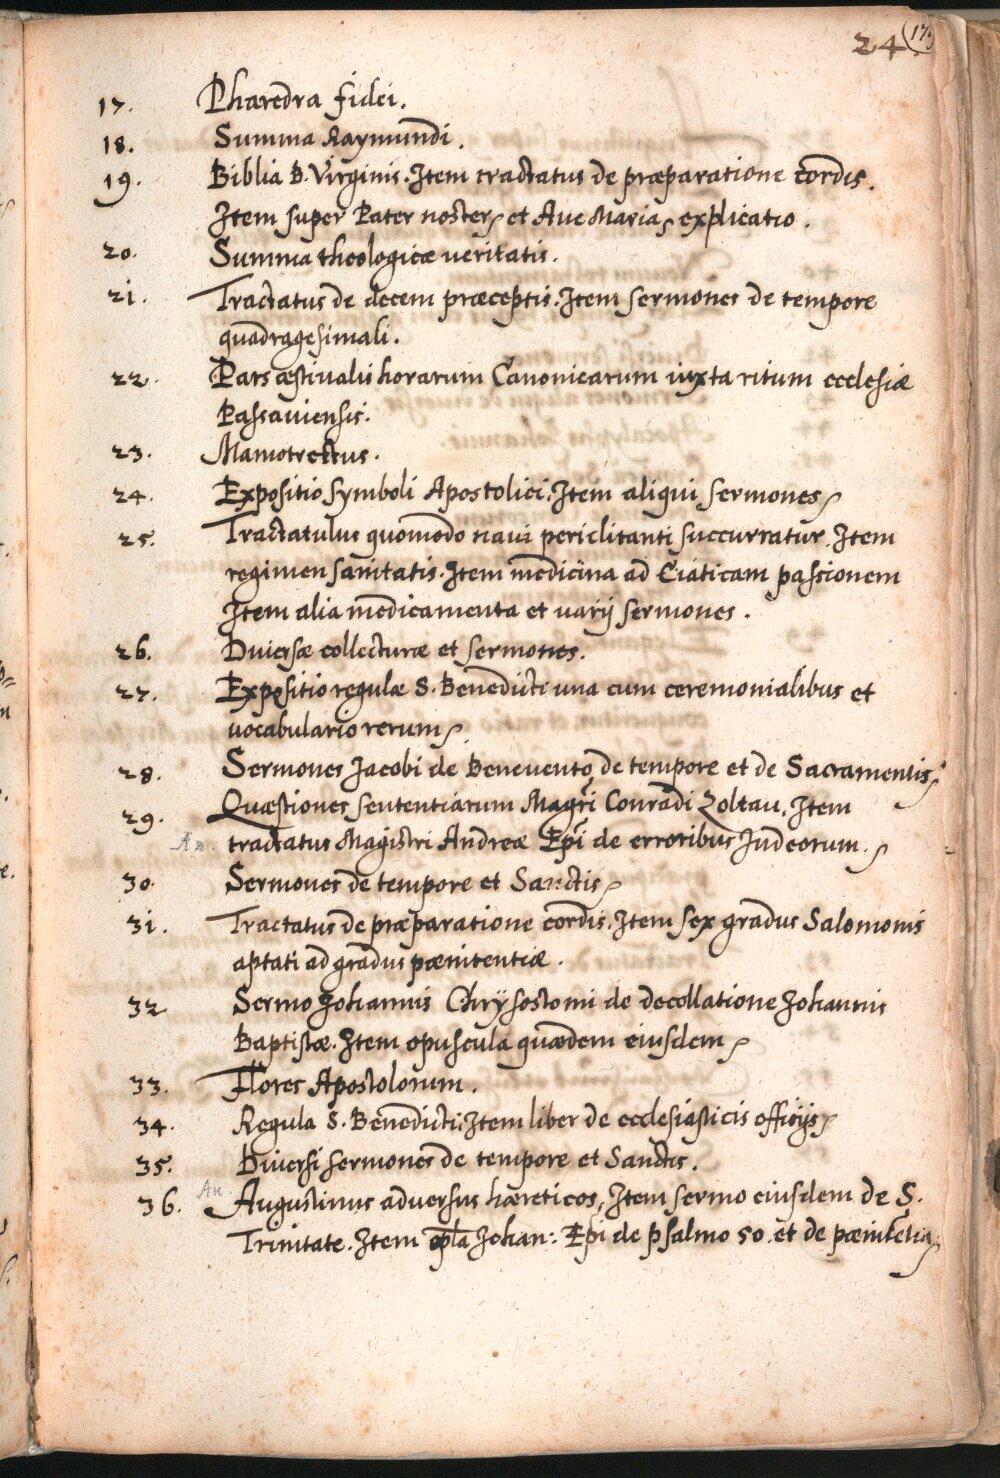 24.
17. Pharedra fidei.
18. Summa Raymundi.
19. Biblia B. Virginis. Item tractatus de præparatione cordis.
Item super Pater noster et Ave Maria explicatio.
20. Summa theologicæ veritatis.
21. Tractatus de decem præceptis. Item sermones de tempore
quadragesimali.
22. Pars æstivalis horarum Canonicarum iuxta ritum ecclesiæ
Passaviensis.
23. Mamotrectus.
24. Expositio symboli Apostolici. Item aliqui sermones
25. Tractatulus quomodo navi periclitanti succurratur. Item
regimen sanitatis. Item medicina ad Ciaticam passionem
Item alia medicamenta et varij sermones.
26. Diversæ collecturæ et sermones.
27. Expositio regulæ S. Benedicti una cum ceremonialibus et
vocabulario rerum
28. Sermones Jacobi de Benevento de tempore et de Sacramentis.
29. Quæstiones sententiarum Magri Conradi Zoltau. Item
tractatus Magistri Andreæ Epi de erroribus Judeorum.
30. Sermones de tempore et Sanctis
31. Tractatus de præparatione cordis. Item sex gradus Salomonis
aptati ad gradus pænitentiæ.
32 Sermo Johannis Chrÿsostomi de decollatione Johannis
Baptistæ. Item opuscula quædem eiusdem
33. Flores Apostolorum.
34. Regula S. Benedicti. Item liber de ecclesiasticis officijs
35. Diversi sermones de tempore et Sanctis.
36. Augustinus adversus hæreticos, Item sermo eiusdem de S.
Trinitate. Item opla Johan: Epi de psalmo 50. et de pænitetia